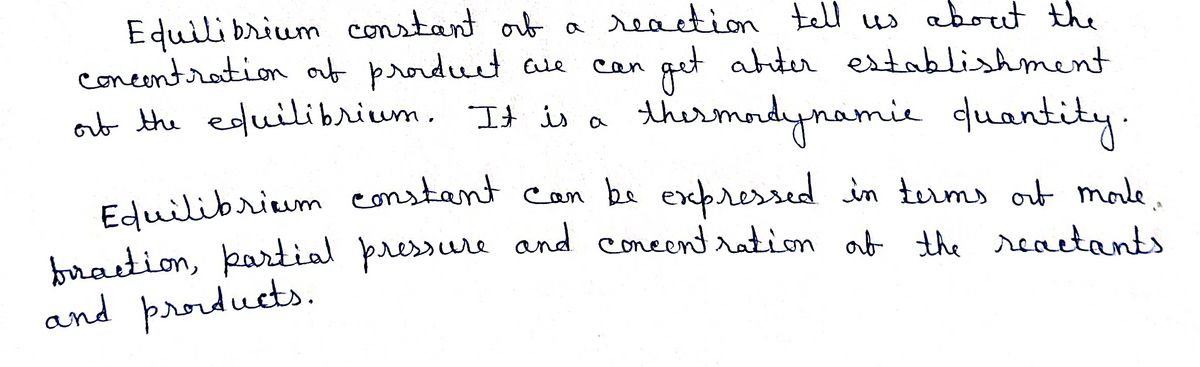 Equilibrium constant of a reaction tell us about the
concentration of product we can get after establishment
of the equilibrium. It is a thermodynamic quantity.
Equilibrium constant can be expressed in terms of mole
fraction, partial pressure and concentration of the reactants
and products.